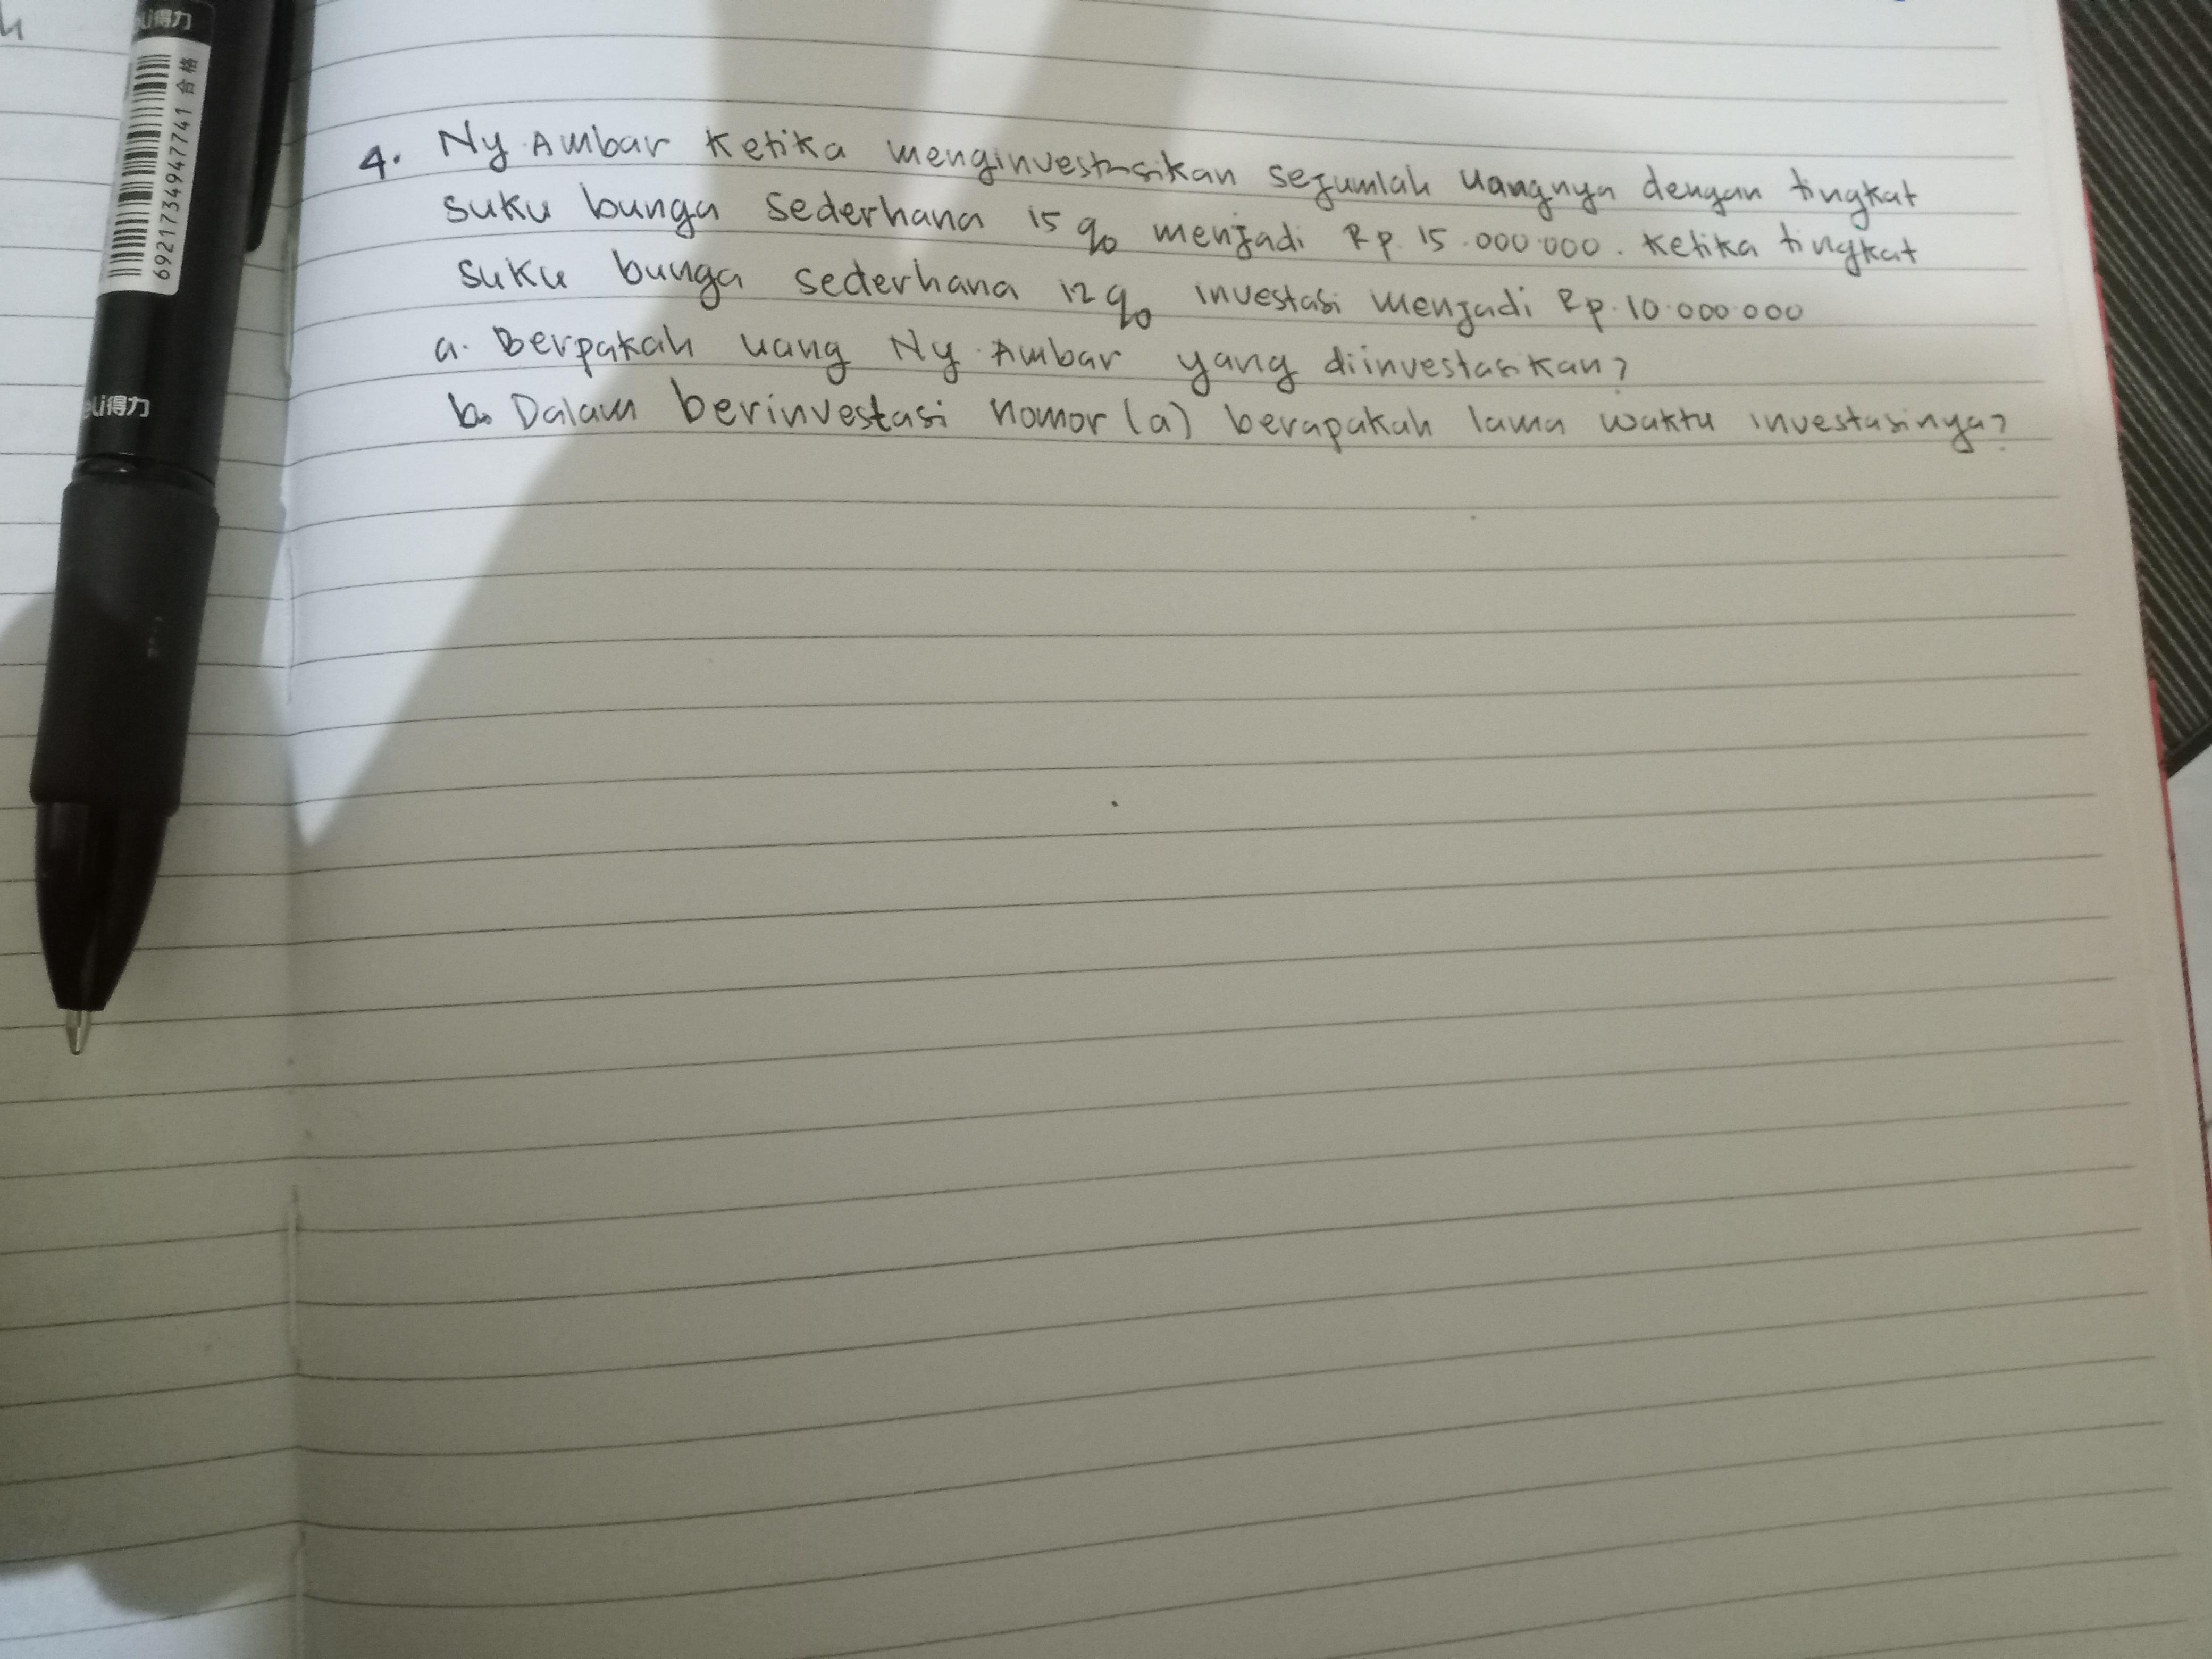 u
eli得力
合格
6921734947741
eli得力
4. Ny. Ambar ketika menginvestasikan sejumlah uangnya dengan tingkat
suku bunga sederhana 15 % menjadi Rp. 15.000.000. Ketika tingkat
suku bunga sederhana 12 % investasi menjadi Rp. 10.000.000
a. Berpakah uang Ny. Ambar yang diinvestasikan?
b. Dalam berinvestasi nomor (a) berapakah lama waktu investasinya?